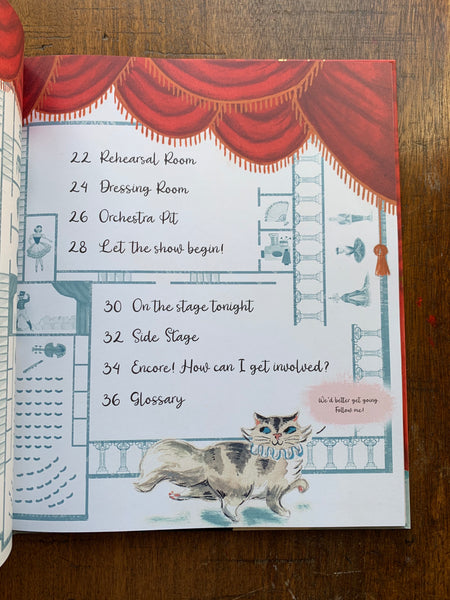 22 Rehearsal Room
24 Dressing Room
26 Orchestra Pit
28 Let the show begin!
30 On the stage tonight
32 Side Stage
34 Encore! How can I get involved?
36 Glossary
We'd better get going.
Follow me!